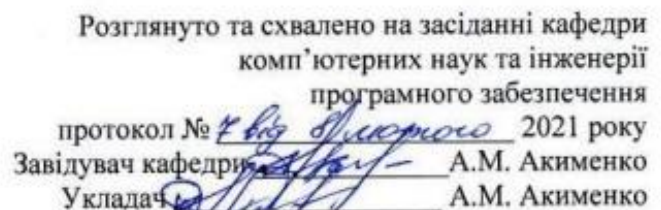 Розглянуто та схвалено на засіданні кафедри
комп’ютерних наук та інженерії
програмного забезпечення
протокол № 7 від 8 лютого 2021 року
Завідувач кафедри А.М. Акименко
Укладач А.М. Акименко